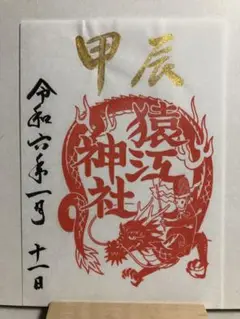 甲辰
猿江
神社
令和六年一月十一日